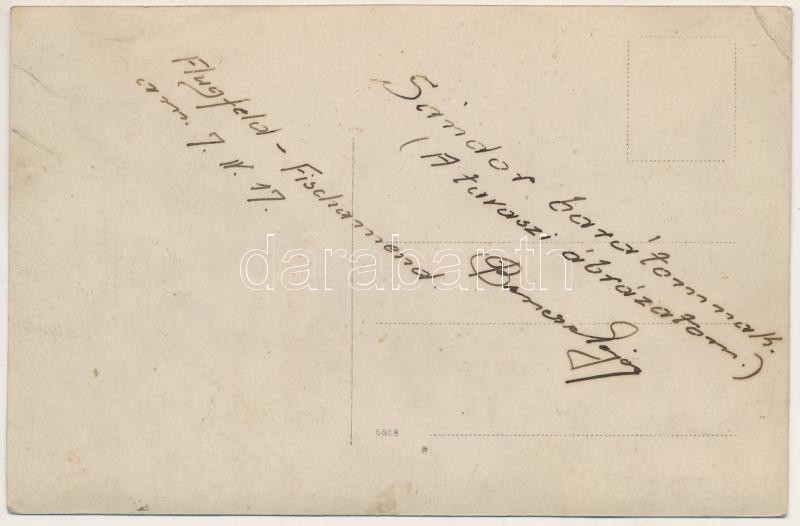 Flugfeld - Fischamend.
am. 7. IV. 17.
Sándor barátommnak.
(A tavaszi ábrázatom.)
5868
darabanth